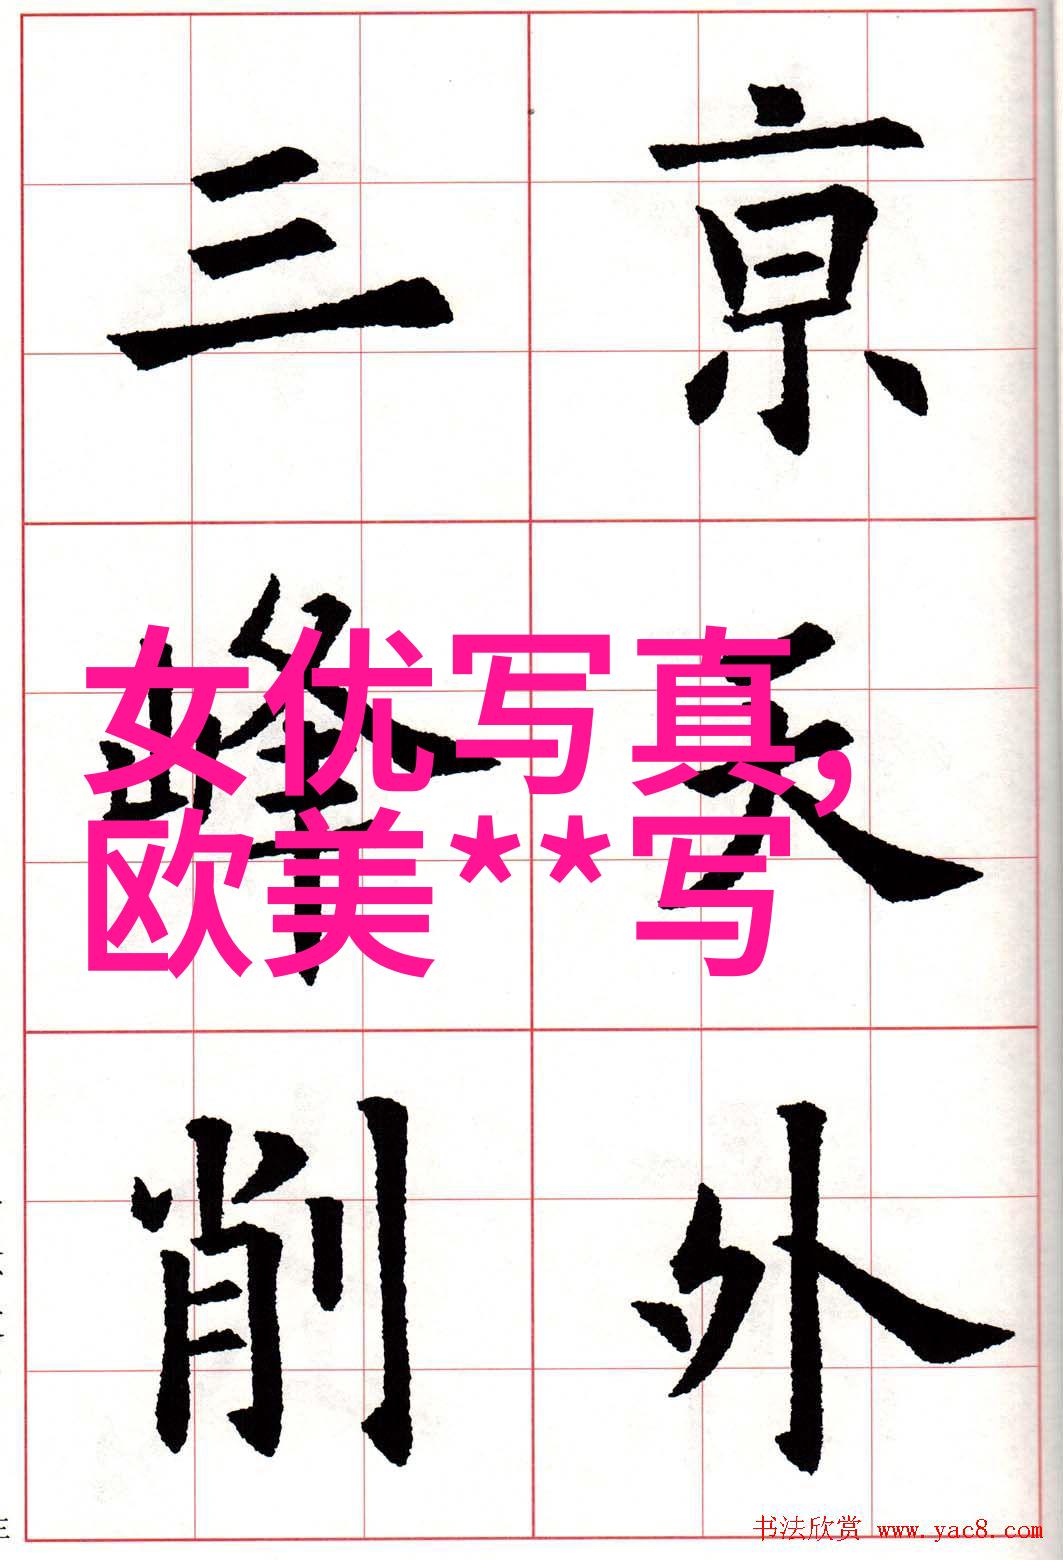 亰天外
三峰削
女优写真,
欧美**写
书法欣赏 www.yac8.com